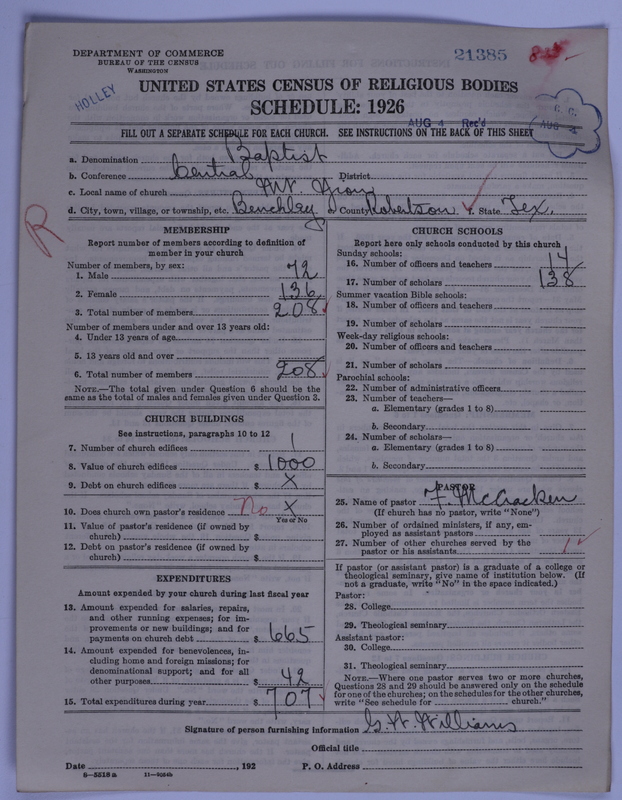 DEPARTMENT OF COMMERCE
BUREAU OF THE CENSUS
WASHINGTON
21385
HOLLEY
UNITED STATES CENSUS OF RELIGIOUS BODIES
SCHEDULE: 1926
AUG 4 Rec'd
C. C.
AUG
FILL OUT A SEPARATE SCHEDULE FOR EACH CHURCH. SEE INSTRUCTIONS ON THE BACK OF THIS SHEET
a. Denomination Baptist
b. Conference Central District
c. Local name of church Mt. Zion
d. City, town, village, or township, etc. Benchley e. County Robertson f. State Tex.
R
MEMBERSHIP
Report number of members according to definition of
member in your church
Number of members, by sex:
1. Male 72
2. Female 136
3. Total number of members 208
Number of members under and over 13 years old:
4. Under 13 years of age
5. 13 years old and over
6. Total number of members 208
NOTE.—The total given under Question 6 should be the
same as the total of males and females given under Question 3.
CHURCH BUILDINGS
See instructions, paragraphs 10 to 12
7. Number of church edifices 1
8. Value of church edifices $ 1000
9. Debt on church edifices $ X
10. Does church own pastor's residence No X
Yes or No
11. Value of pastor's residence (if owned by
church) $
12. Debt on pastor's residence (if owned by
church) $
EXPENDITURES
Amount expended by your church during last fiscal year
13. Amount expended for salaries, repairs,
and other running expenses; for im-
provements or new buildings; and for
payments on church debt $ 665
14. Amount expended for benevolences, in-
cluding home and foreign missions; for
denominational support; and for all
other purposes $ 42
15. Total expenditures during year $ 707
CHURCH SCHOOLS
Report here only schools conducted by this church
Sunday schools:
16. Number of officers and teachers 14
17. Number of scholars 138
Summer vacation Bible schools:
18. Number of officers and teachers
19. Number of scholars
Week-day religious schools:
20. Number of officers and teachers
21. Number of scholars
Parochial schools:
22. Number of administrative officers
23. Number of teachers—
a. Elementary (grades 1 to 8)
b. Secondary
24. Number of scholars—
a. Elementary (grades 1 to 8)
b. Secondary
PASTOR
25. Name of pastor F. McCracken
(If church has no pastor, write "None")
26. Number of ordained ministers, if any, em-
ployed as assistant pastors
27. Number of other churches served by the
pastor or his assistants 1
If pastor (or assistant pastor) is a graduate of a college or
theological seminary, give name of institution below. (If
not a graduate, write "No" in the space indicated.)
Pastor:
28. College
29. Theological seminary
Assistant pastor:
30. College
31. Theological seminary
NOTE.—Where one pastor serves two or more churches,
Questions 28 and 29 should be answered only on the schedule
for one of the churches; on the schedules for the other churches,
write "See schedule for church."
Signature of person furnishing information G. W. Williams
Official title
Date , 192 P. O. Address
8—5518 a